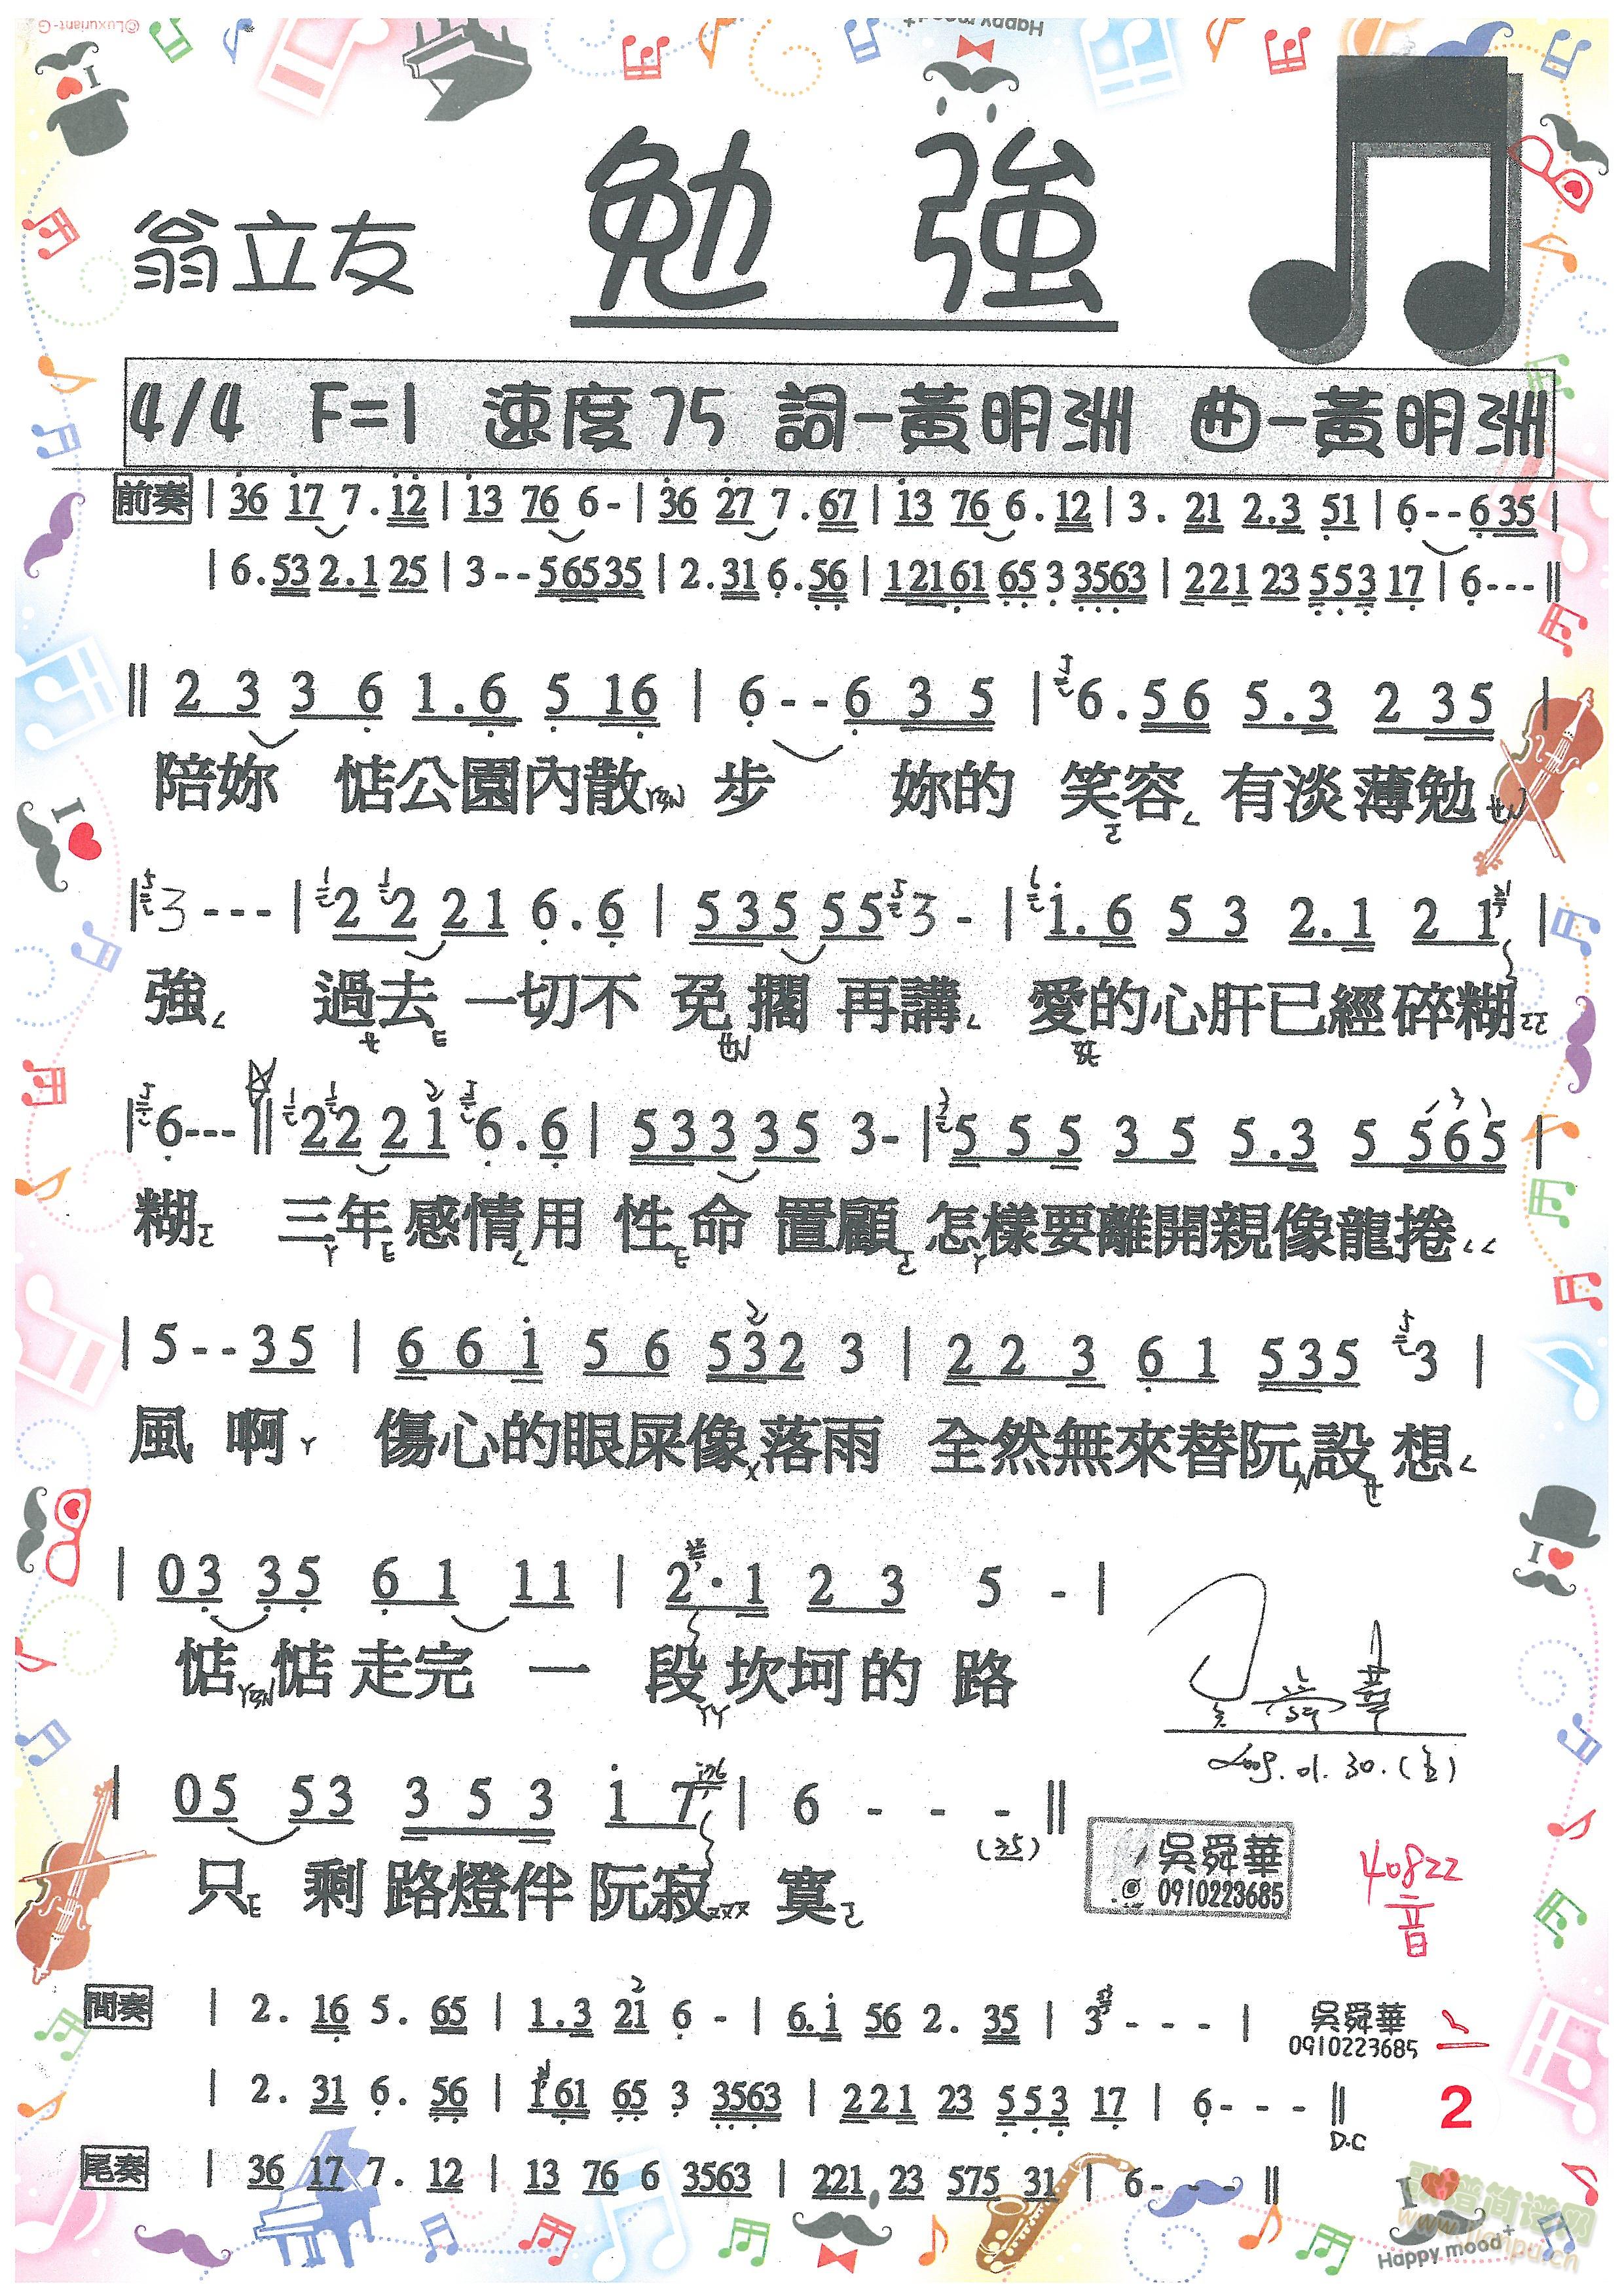 ©Luxuriant-G
Happy mood
I
翁立友
勉 強
4/4 F=1 速度75 詞-黃明洲 曲-黃明洲
前奏 | 36 17 7.12 | 13 76 6- | 36 27 7.67 | 13 76 6.12 | 3. 21 2.3 51 | 6--635 |
| 6.53 2.1 25 | 3--56535 | 2.31 6.56 | 12161 65 3 3563 | 221 23 553 17 | 6--- ||
|| 2 3 3 6 1.6 5 16 | 6--6 3 5 | 6.56 5.3 2 35 |
陪妳 惦公園內散 步 妳的 笑容 有淡薄勉
| 3--- | 2 2 21 6.6 | 535 55 3- | 1.6 5 3 2.1 2 1 |
強 過去 一切不 免擱 再講 愛的心肝已經碎糊
| 6--- || 22 21 6.6 | 533 35 3- | 5 5 5 3 5 5.3 5 565 |
糊 三年感情用 性命 置顧 怎樣要離開親像龍捲
| 5--35 | 6 6 1 5 6 532 3 | 2 2 3 6 1 535 3 |
風 啊 傷心的眼屎像落雨 全然無來替阮設想
| 03 35 6 1 11 | 2.1 2 3 5 - |
惦惦走完 一 段坎坷的 路
| 05 53 3 5 3 1 7 | 6 - - - ||
(35)
只 剩路燈伴阮寂 寞
吳舜華
0910223685
40822
音
間奏 | 2. 16 5. 65 | 1.3 21 6 - | 6.1 56 2. 35 | 3 - - - |
吳舜華
0910223685
| 2. 31 6. 56 | 161 65 3 3563 | 221 23 553 17 | 6- - - ||
D.C
2
尾奏 | 36 17 7. 12 | 13 76 6 3563 | 221 23 575 31 | 6- - - ||
I
Happy mood